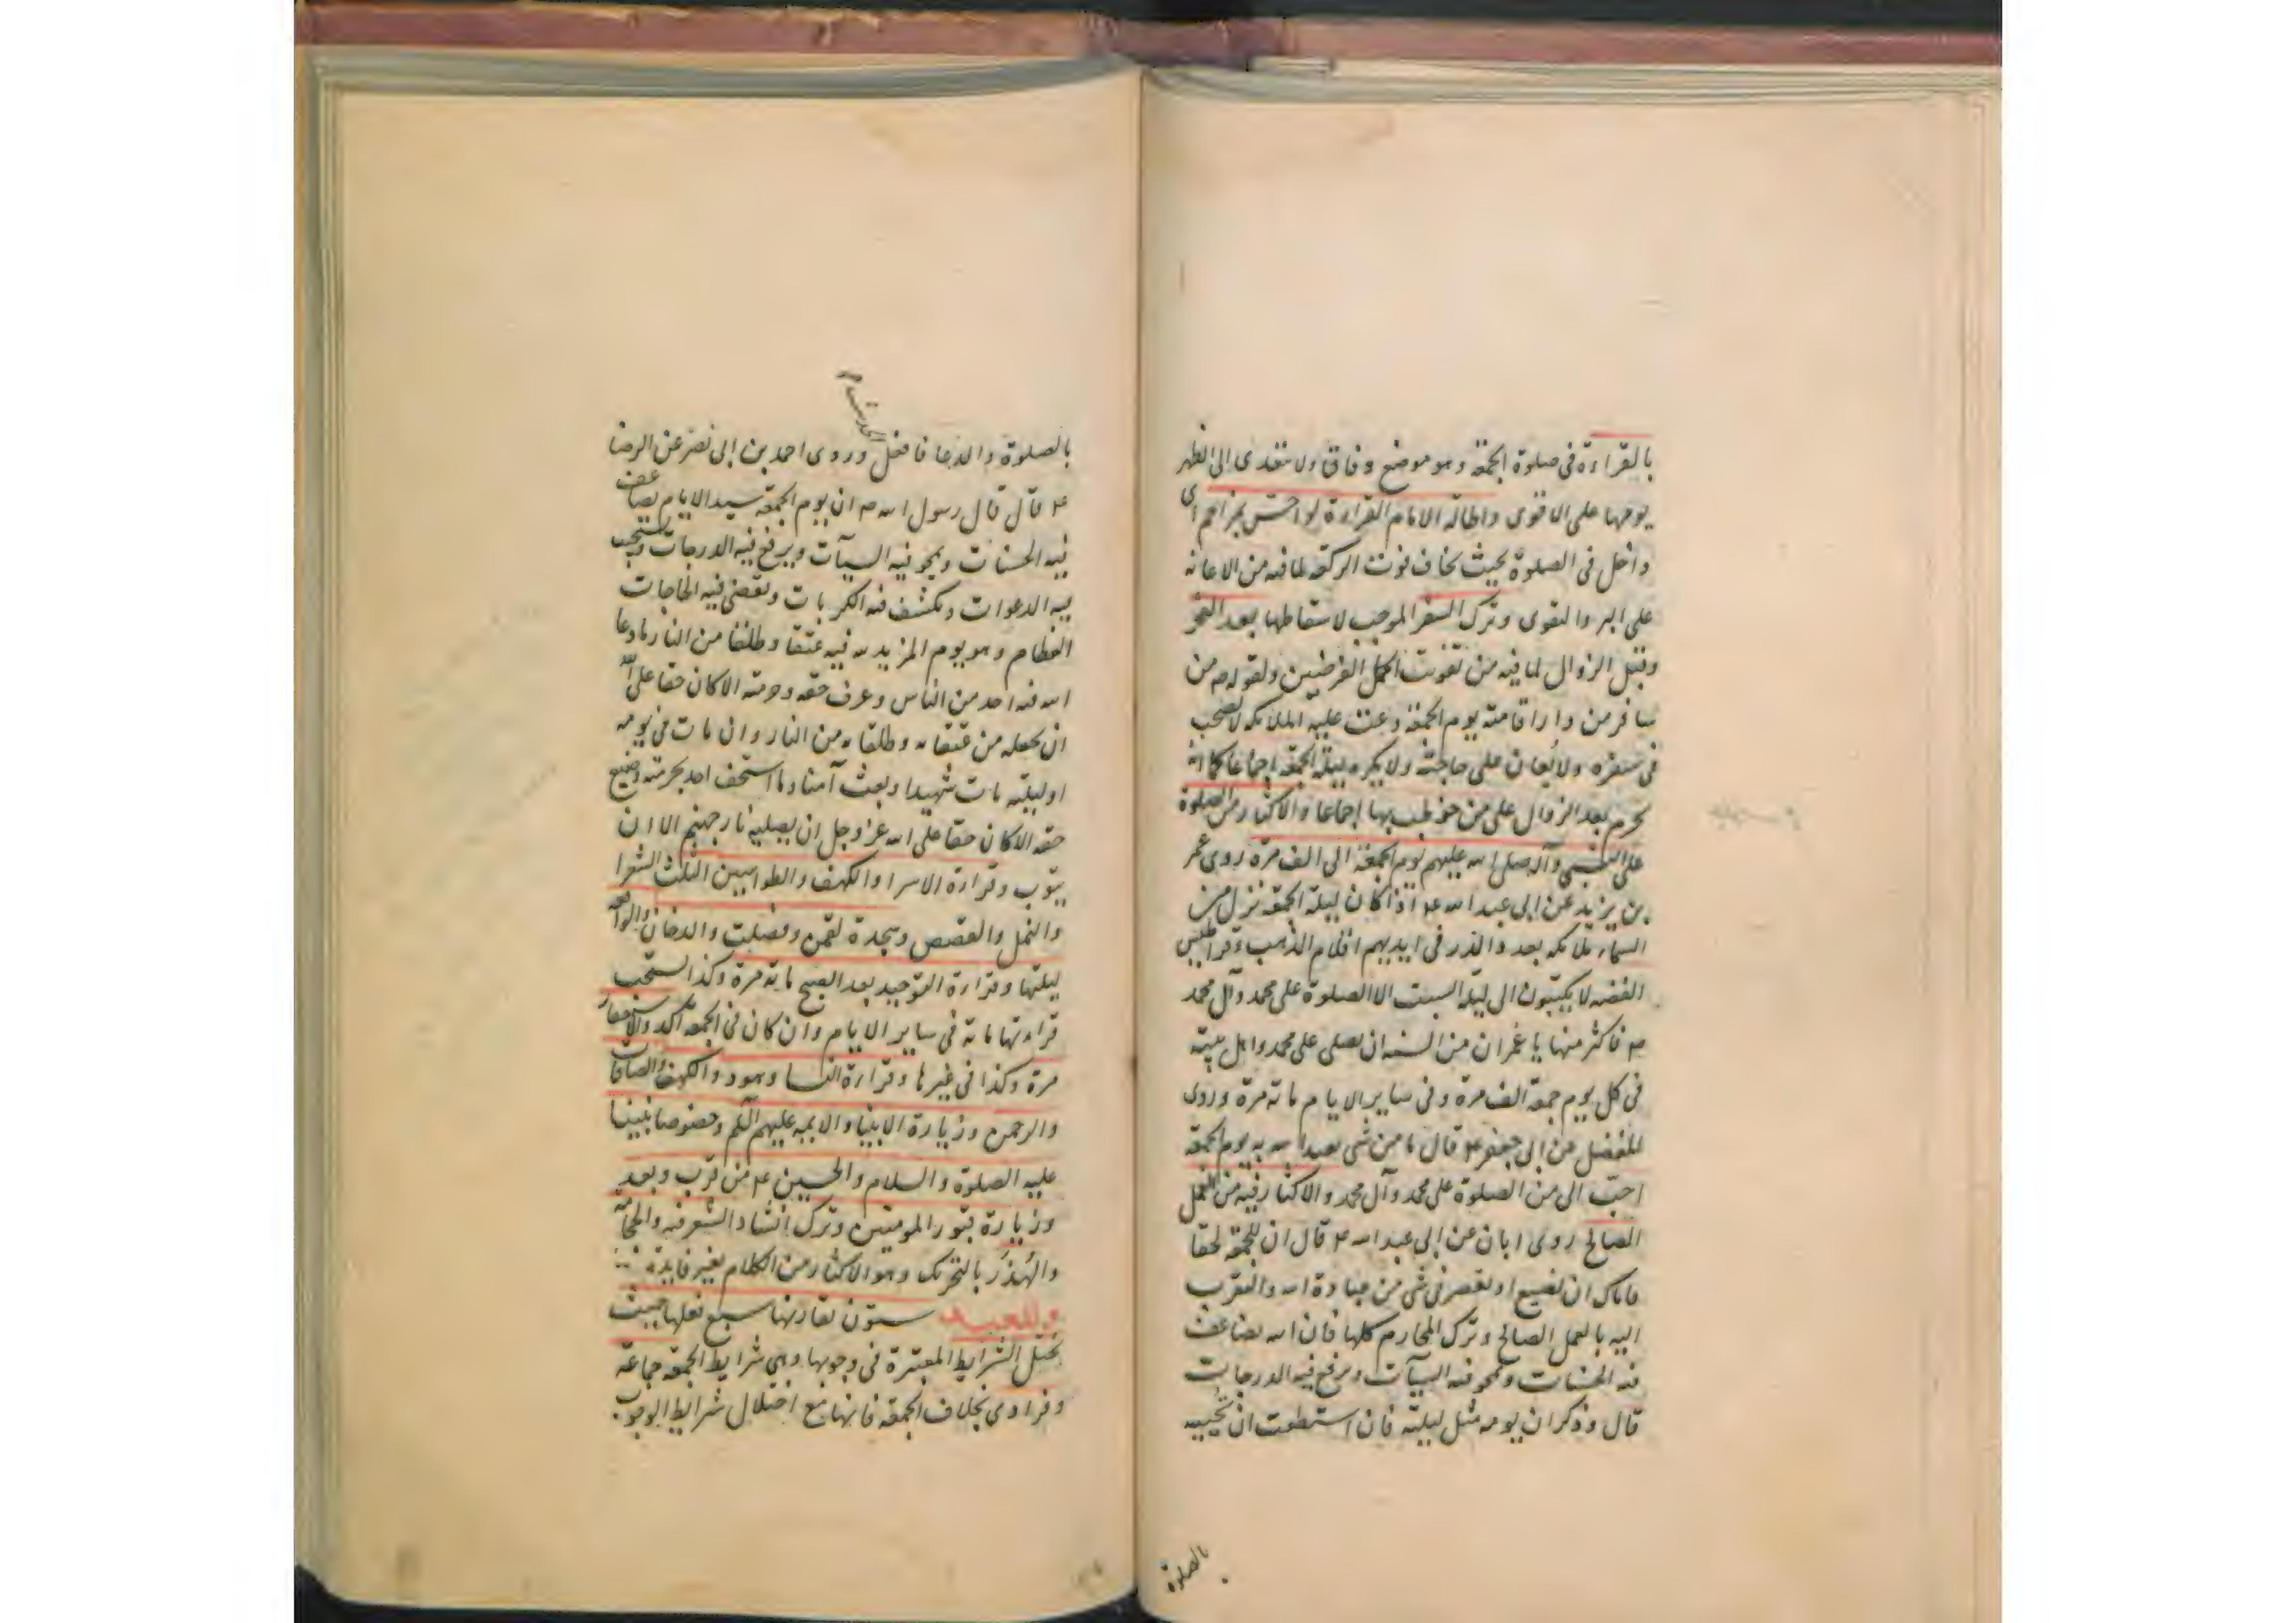 بالقراءة فى صلوة الجمعة وهو موضع وفاق ولا تتعدى الى الظهر
يومها على الاقوى واطالة الامام القراءة لو احس بمزاحم اى
داخل فى الصلوة بحيث يخاف فوت الركعة لما فيه من الاعانة
على البر والتقوى وترك السفر الموجب لاسقاطها بعد الفجر
وقبل الزوال لما فيه من تفويت اكمل الفرضين ولقوله ص من
سافر من دار اقامته يوم الجمعة دعت عليه الملائكة لا يصحب
فى سفره ولا يعان على حاجته ولا يكره ليلة الجمعة اجماعا كما انه
يحرم بعد الزوال على من خوطب بها اجماعا والاكثار من الصلوة
على النبى وآله صلى الله عليهم يوم الجمعة الى الف مرة روى عمر
بن يزيد عن ابى عبد الله ع اذا كان ليلة الجمعة نزل من
السماء ملائكة بعدد الذر فى ايديهم اقلام الذهب وقراطيس
الفضة لا يكتبون الى ليلة السبت الا الصلوة على محمد وآل محمد
ص فاكثر منها يا عمر ان من السنة ان تصلى على محمد واهل بيته
فى كل يوم جمعة الف مرة وفى ساير الايام مائة مرة وروى
المفضل عن ابى جعفر ع قال ما من شئ يعبد الله به يوم الجمعة
احب الى من الصلوة على محمد وآل محمد والاكثار فيه من العمل
الصالح روى ابان عن ابى عبد الله ع قال ان للجمعة لحقا
فاياك ان تضيع او تقصر فى شئ من عبادة الله والتقرب
اليه بالعمل الصالح وترك المحارم كلها فان الله يضاعف
فيه الحسنات ويمحو فيه السيآت ويرفع فيه الدرجات
قال وذكر ان يومه مثل ليلته فان استطعت ان تحييه
بالصلوة
بالصلوة والدعا فافعل وروى احمد بن ابى نصر عن الرضا
ع قال قال رسول الله ص ان يوم الجمعة سيد الايام يضاعف
فيه الحسنات ويمحو فيه السيآت ويرفع فيه الدرجات ويستجيب
فيه الدعوات ويكشف فيه الكربات وتقضى فيه الحاجات
العظام وهو يوم المزيد لله فيه عتقا وطلقا من النار ما دعا
الله فيه احد من الناس وعرف حقه وحرمته الا كان حقا على الله
ان يجعله من عتقائه وطلقائه من النار وان مات فى يومه
او ليلته مات شهيدا وبعث آمنا وما استخف احد بحرمته وضيع
حقه الا كان حقا على الله عز وجل ان يصليه نار جهنم الا ان
يتوب وقراءة الاسرا والكهف والطواسين الثلث الشعرا
والنمل والقصص وسجدة لقمن وفصلت والدخان والواقعة
ليلتها وقراءة التوحيد بعد الصبح مائة مرة وكذا يستحب
قراءتها مائة فى ساير الايام وان كان فى الجمعة آكد والاستغفار
مرة وكذا فى غيرها وقراءة النسا وهود والكهف والصافات
والرحمن وزيارة الانبيا والائمة عليهم السلم وخصوصا نبينا
عليه الصلوة والسلام والحسين ع من قرب وبعد
وزيارة قبور المومنين وترك انشاد الشعر فيه والحجامة
والهذر بالتحريك وهو الاكثار من الكلام بغير فايدة
وللعيد ستون تقارنها سبع فعلها حيث
تختل الشرايط المعتبرة فى وجوبها وهى شرايط الجمعة جماعة
وفرادى بخلاف الجمعة فانها مع اختلال شرايط الوجوب